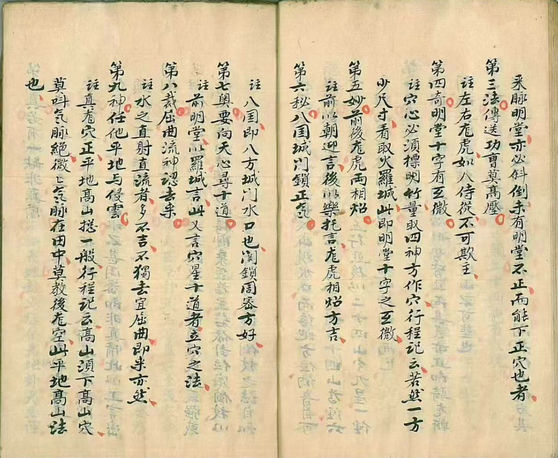 來脉明堂亦必斜倒未有明堂不正而能下正穴也者
第三法傳送功曹莫高壓
註左右龙虎如人侍從不可欺主
第四奇明堂十字有玄微
註穴心必須標明竹量取四神方作穴行程記云若然一方
少尺寸看取火羅城此即明堂十字之玄微
第五妙前後龙虎兩相炤
註前以朝迎言後以樂托言龙虎相炤方吉
第六秘八国城門鎖正气
註八国即八方城門水口也関鎖周密方好
第七奥要向天心尋十道
註前明堂以羅城言此又言穴星十道者立穴之法
第八裁屈曲流神認去來
註水之直射直流者多不吉不獨去宜屈曲即來亦然
第九神任他平地与侵雲
註真龙穴正平地高山搃一般行程記云高山頂下高山穴
莫呌气脉絶微云气脉在田中莫教後龙空此平地高山法
也